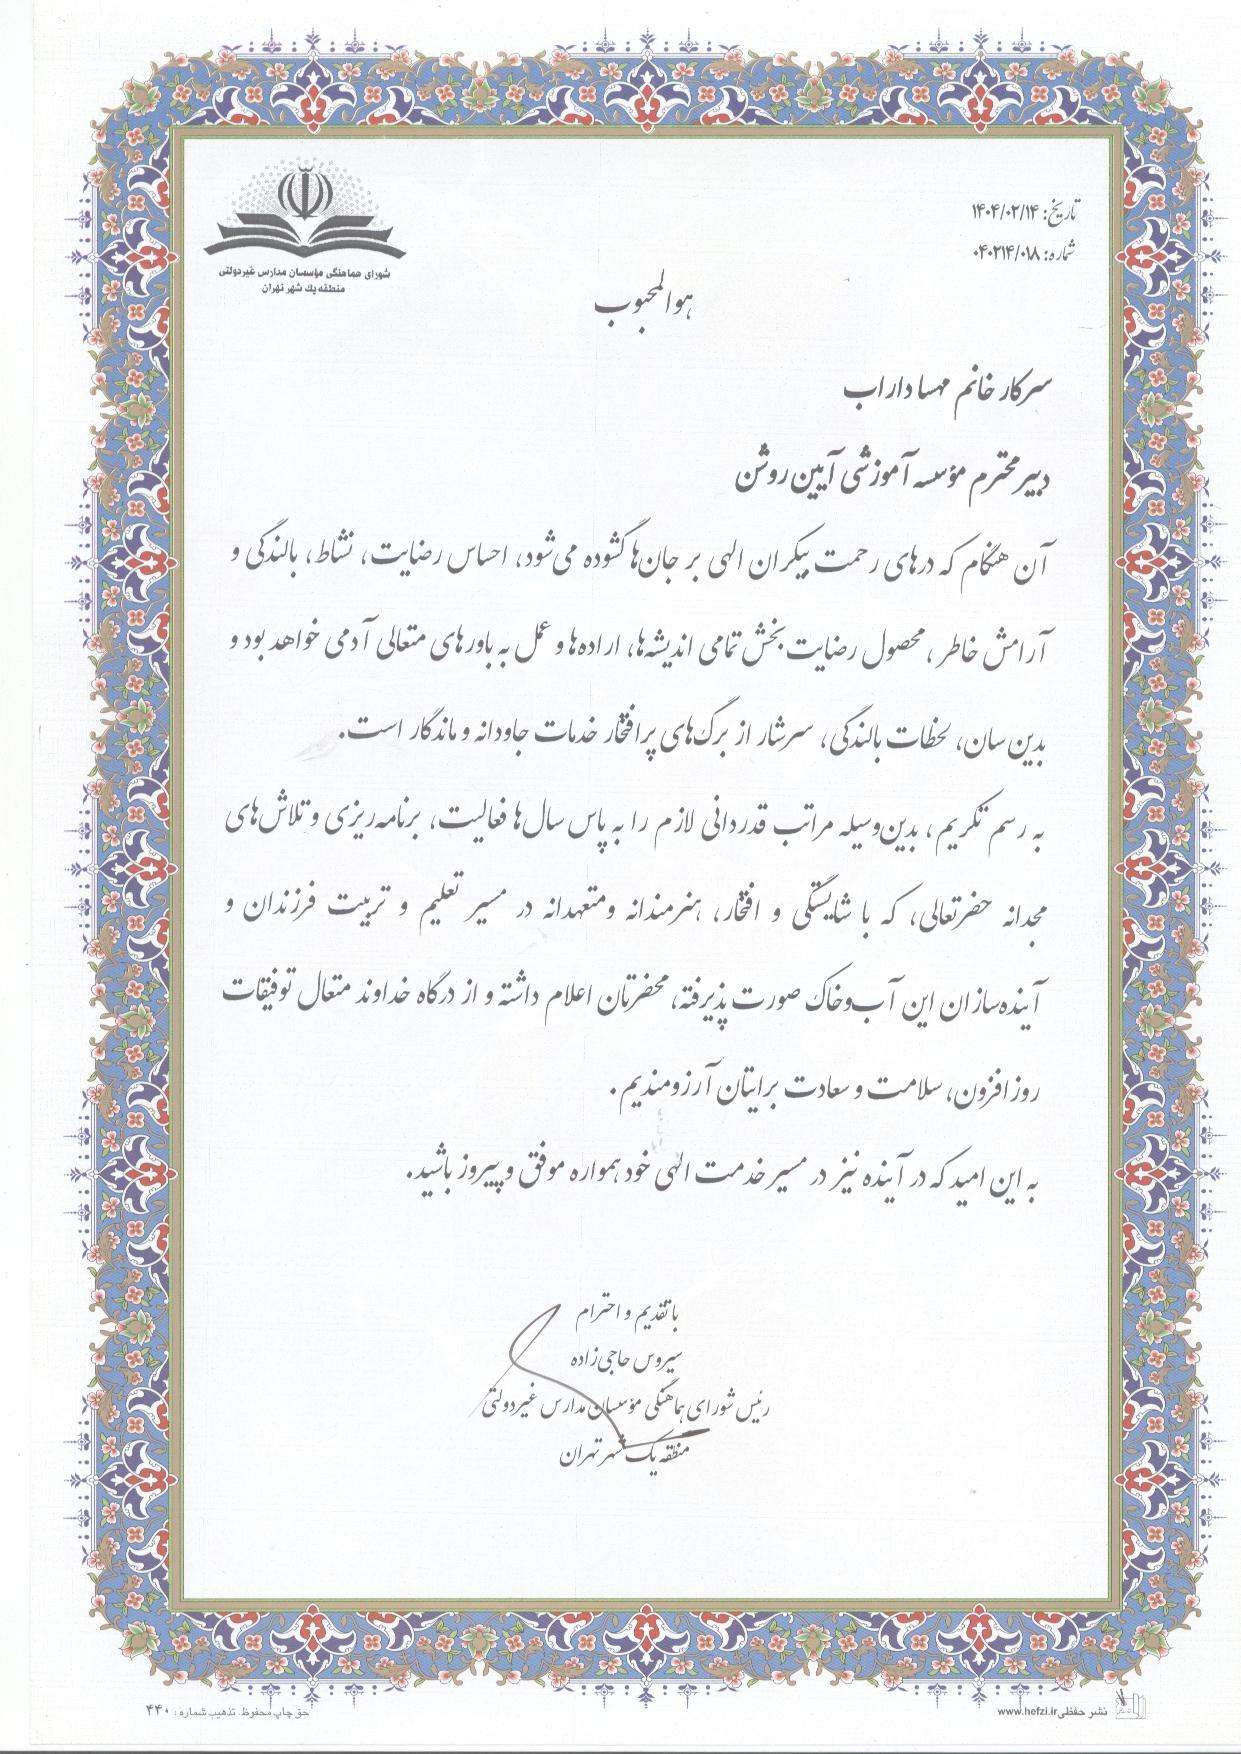 تاریخ: ۱۴۰۴/۰۲/۱۴
شماره: ۰۴۰۲۱۴/۰۱۸
شورای هماهنگی مؤسسان مدارس غیردولتی
منطقه یک شهر تهران
هوالمحبوب
سرکار خانم مهسا داراب
دبیر محترم مؤسسه آموزشی آیین روشن
آن هنگام که درهای رحمت بیکران الهی بر جان‌ها گشوده می‌شود، احساس رضایت، نشاط، بالندگی و
آرامش خاطر، محصول رضایت بخش تمامی اندیشه‌ها، اراده‌ها و عمل به باورهای متعالی آدمی خواهد بود و
بدین سان، لحظات بالندگی، سرشار از برگ‌های پرافتخار خدمات جاودانه و ماندگار است.
به رسم تکریم، بدین‌وسیله مراتب قدردانی لازم را به پاس سال‌ها فعالیت، برنامه‌ریزی و تلاش‌های
مجدانه حضرتعالی، که با شایستگی و افتخار، هنرمندانه ومتعهدانه در مسیر تعلیم و تربیت فرزندان و
آینده‌سازان این آب‌وخاک صورت پذیرفته، محضرتان اعلام داشته و از درگاه خداوند متعال توفیقات
روز افزون، سلامت و سعادت برایتان آرزومندیم.
به این امید که در آینده نیز در مسیر خدمت الهی خود همواره موفق و پیروز باشید.
با تقدیم و احترام
سیروس حاجی‌زاده
رئیس شورای هماهنگی مؤسسان مدارس غیردولتی
منطقه یک شهر تهران
نشر حفظی www.hefzi.ir
حق چاپ محفوظ. تذهیب شماره: ۴۴۰